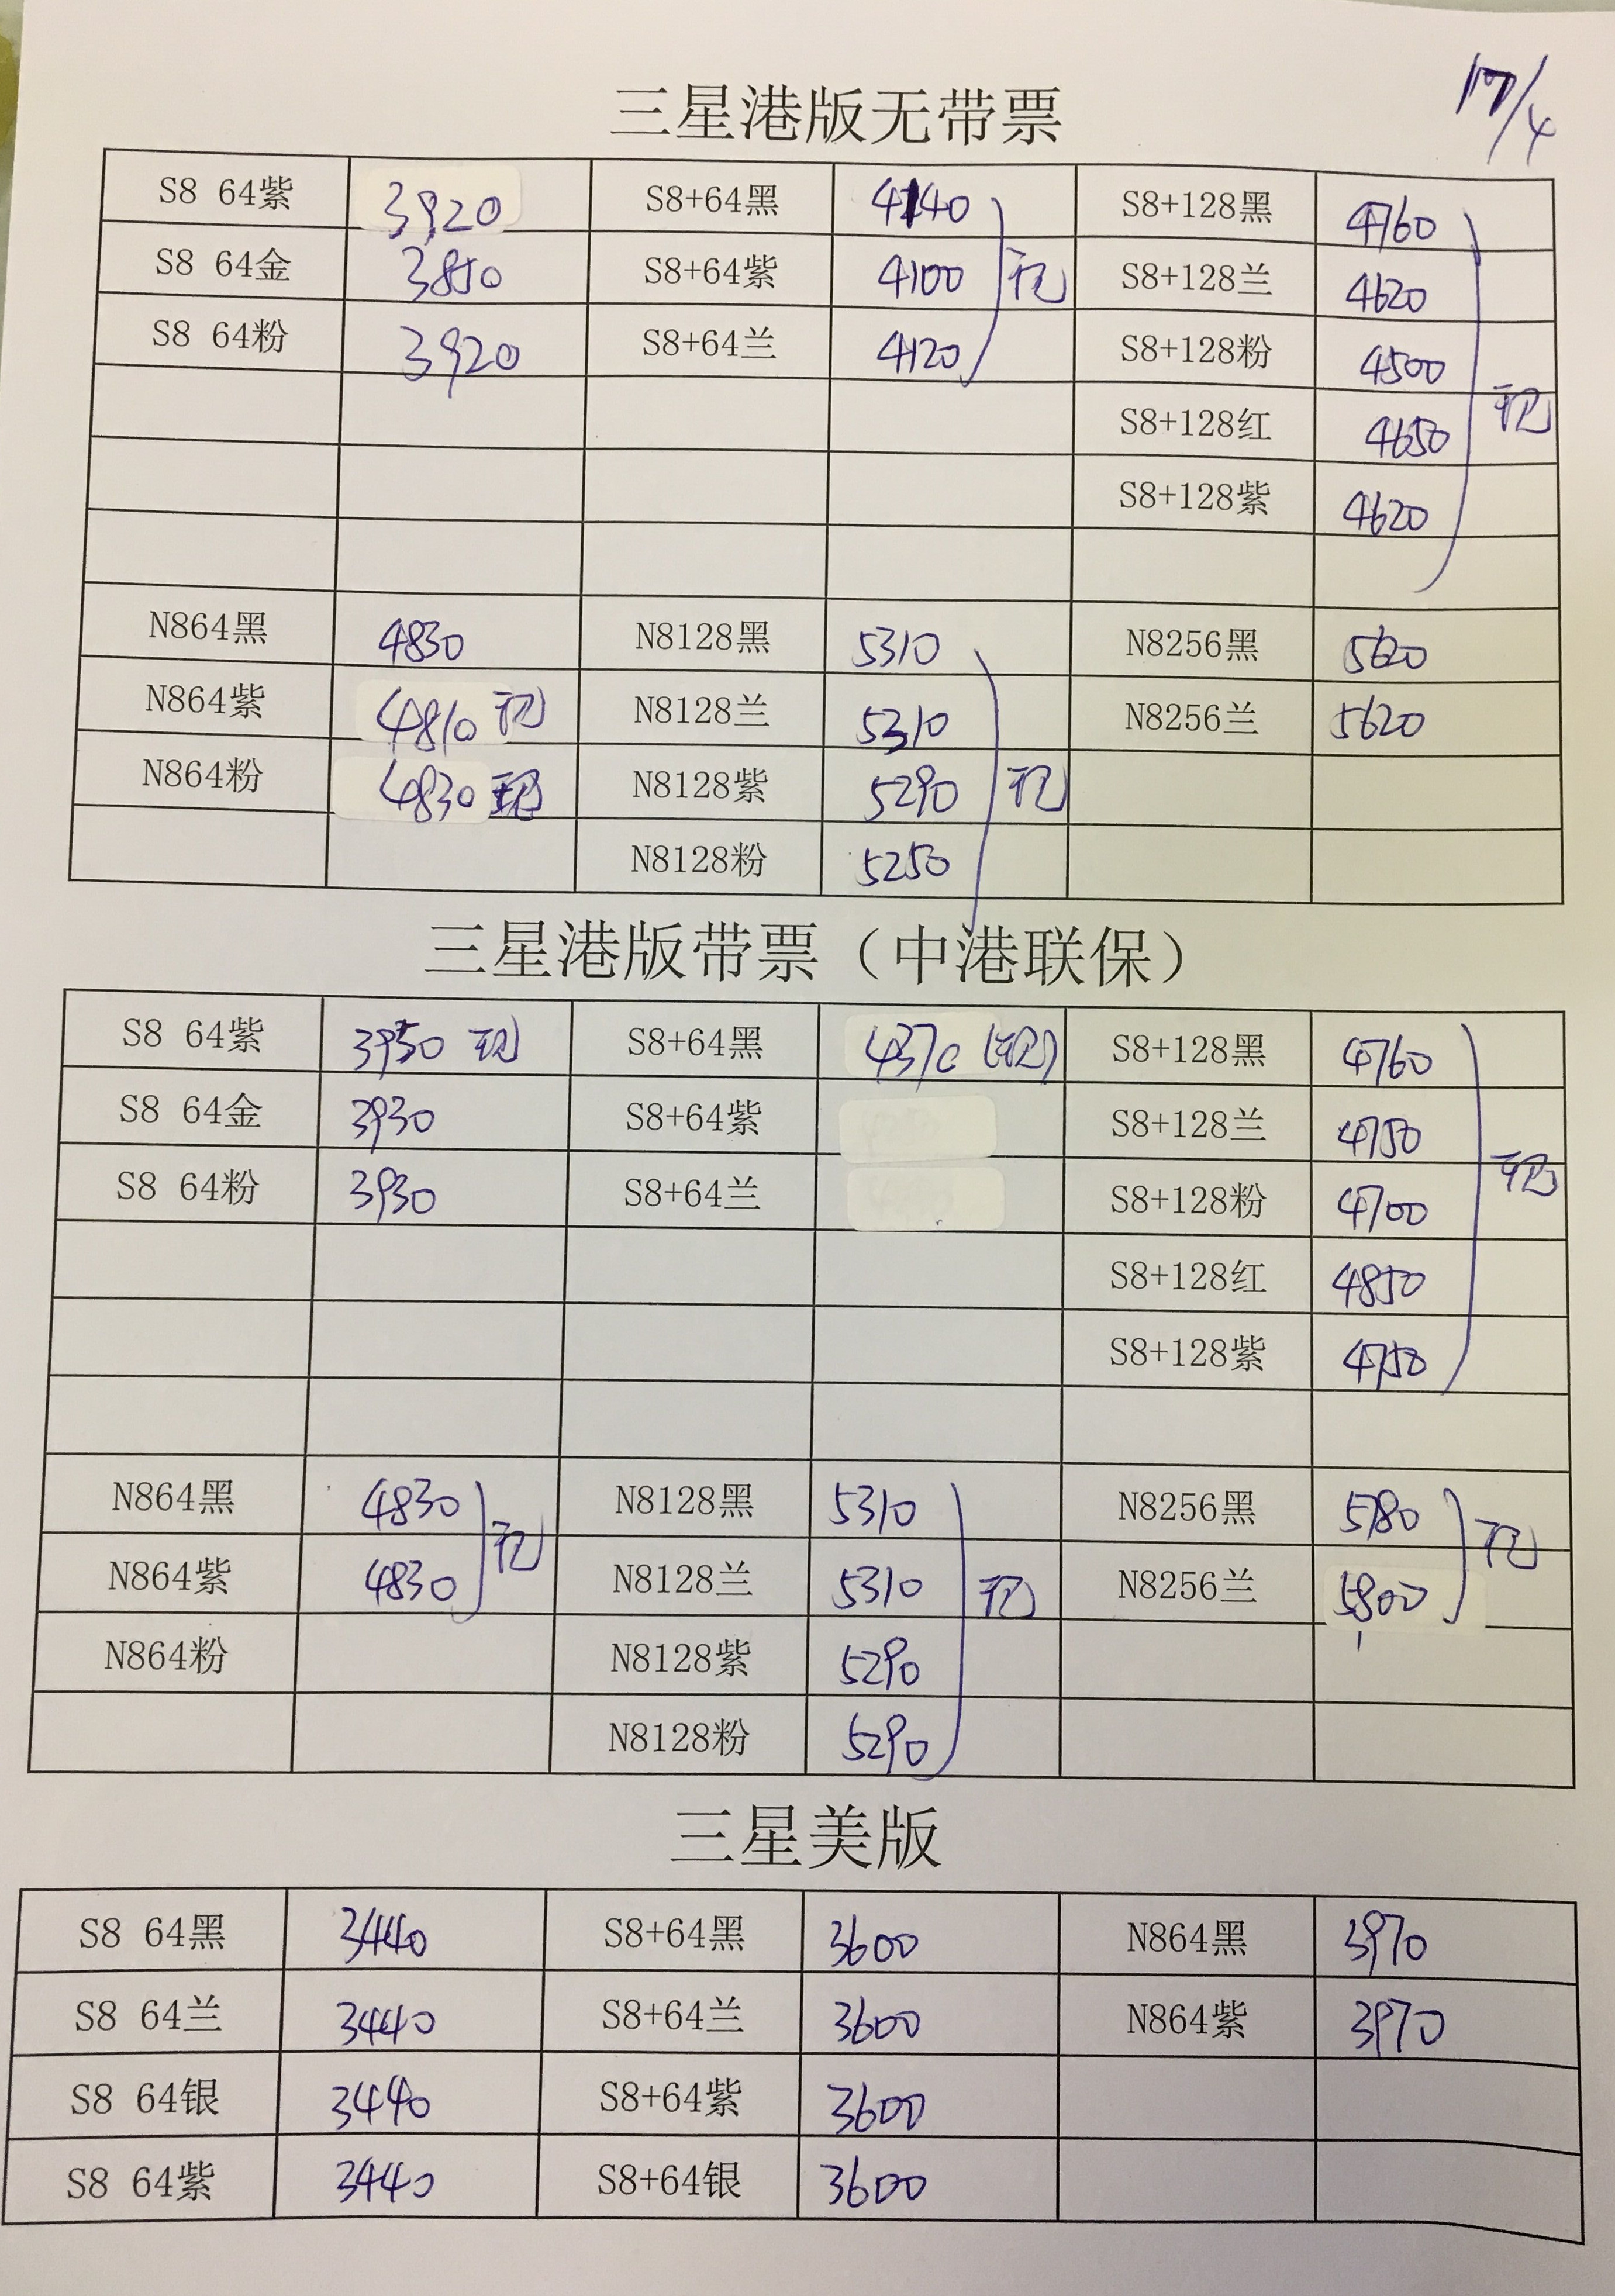 17/4
三星港版无带票
S8 64紫 3920 S8+64黑 4140 S8+128黑 4760
S8 64金 3850 S8+64紫 4100 现 S8+128兰 4620
S8 64粉 3920 S8+64兰 4120 S8+128粉 4500
S8+128红 4650 现
S8+128紫 4620
N864黑 4830 N8128黑 5310 N8256黑 5620
N864紫 4810 现 N8128兰 5310 N8256兰 5620
N864粉 4830 现 N8128紫 5290 现
N8128粉 5250
三星港版带票（中港联保）
S8 64紫 3950 现 S8+64黑 4370 (现) S8+128黑 4760
S8 64金 3930 S8+64紫 S8+128兰 4750
S8 64粉 3930 S8+64兰 S8+128粉 4700 现
S8+128红 4850
S8+128紫 4750
N864黑 4830 现 N8128黑 5310 N8256黑 5780 现
N864紫 4830 N8128兰 5310 现 N8256兰 5800
N864粉 N8128紫 5290
N8128粉 5290
三星美版
S8 64黑 3440 S8+64黑 3600 N864黑 3970
S8 64兰 3440 S8+64兰 3600 N864紫 3970
S8 64银 3440 S8+64紫 3600
S8 64紫 3440 S8+64银 3600